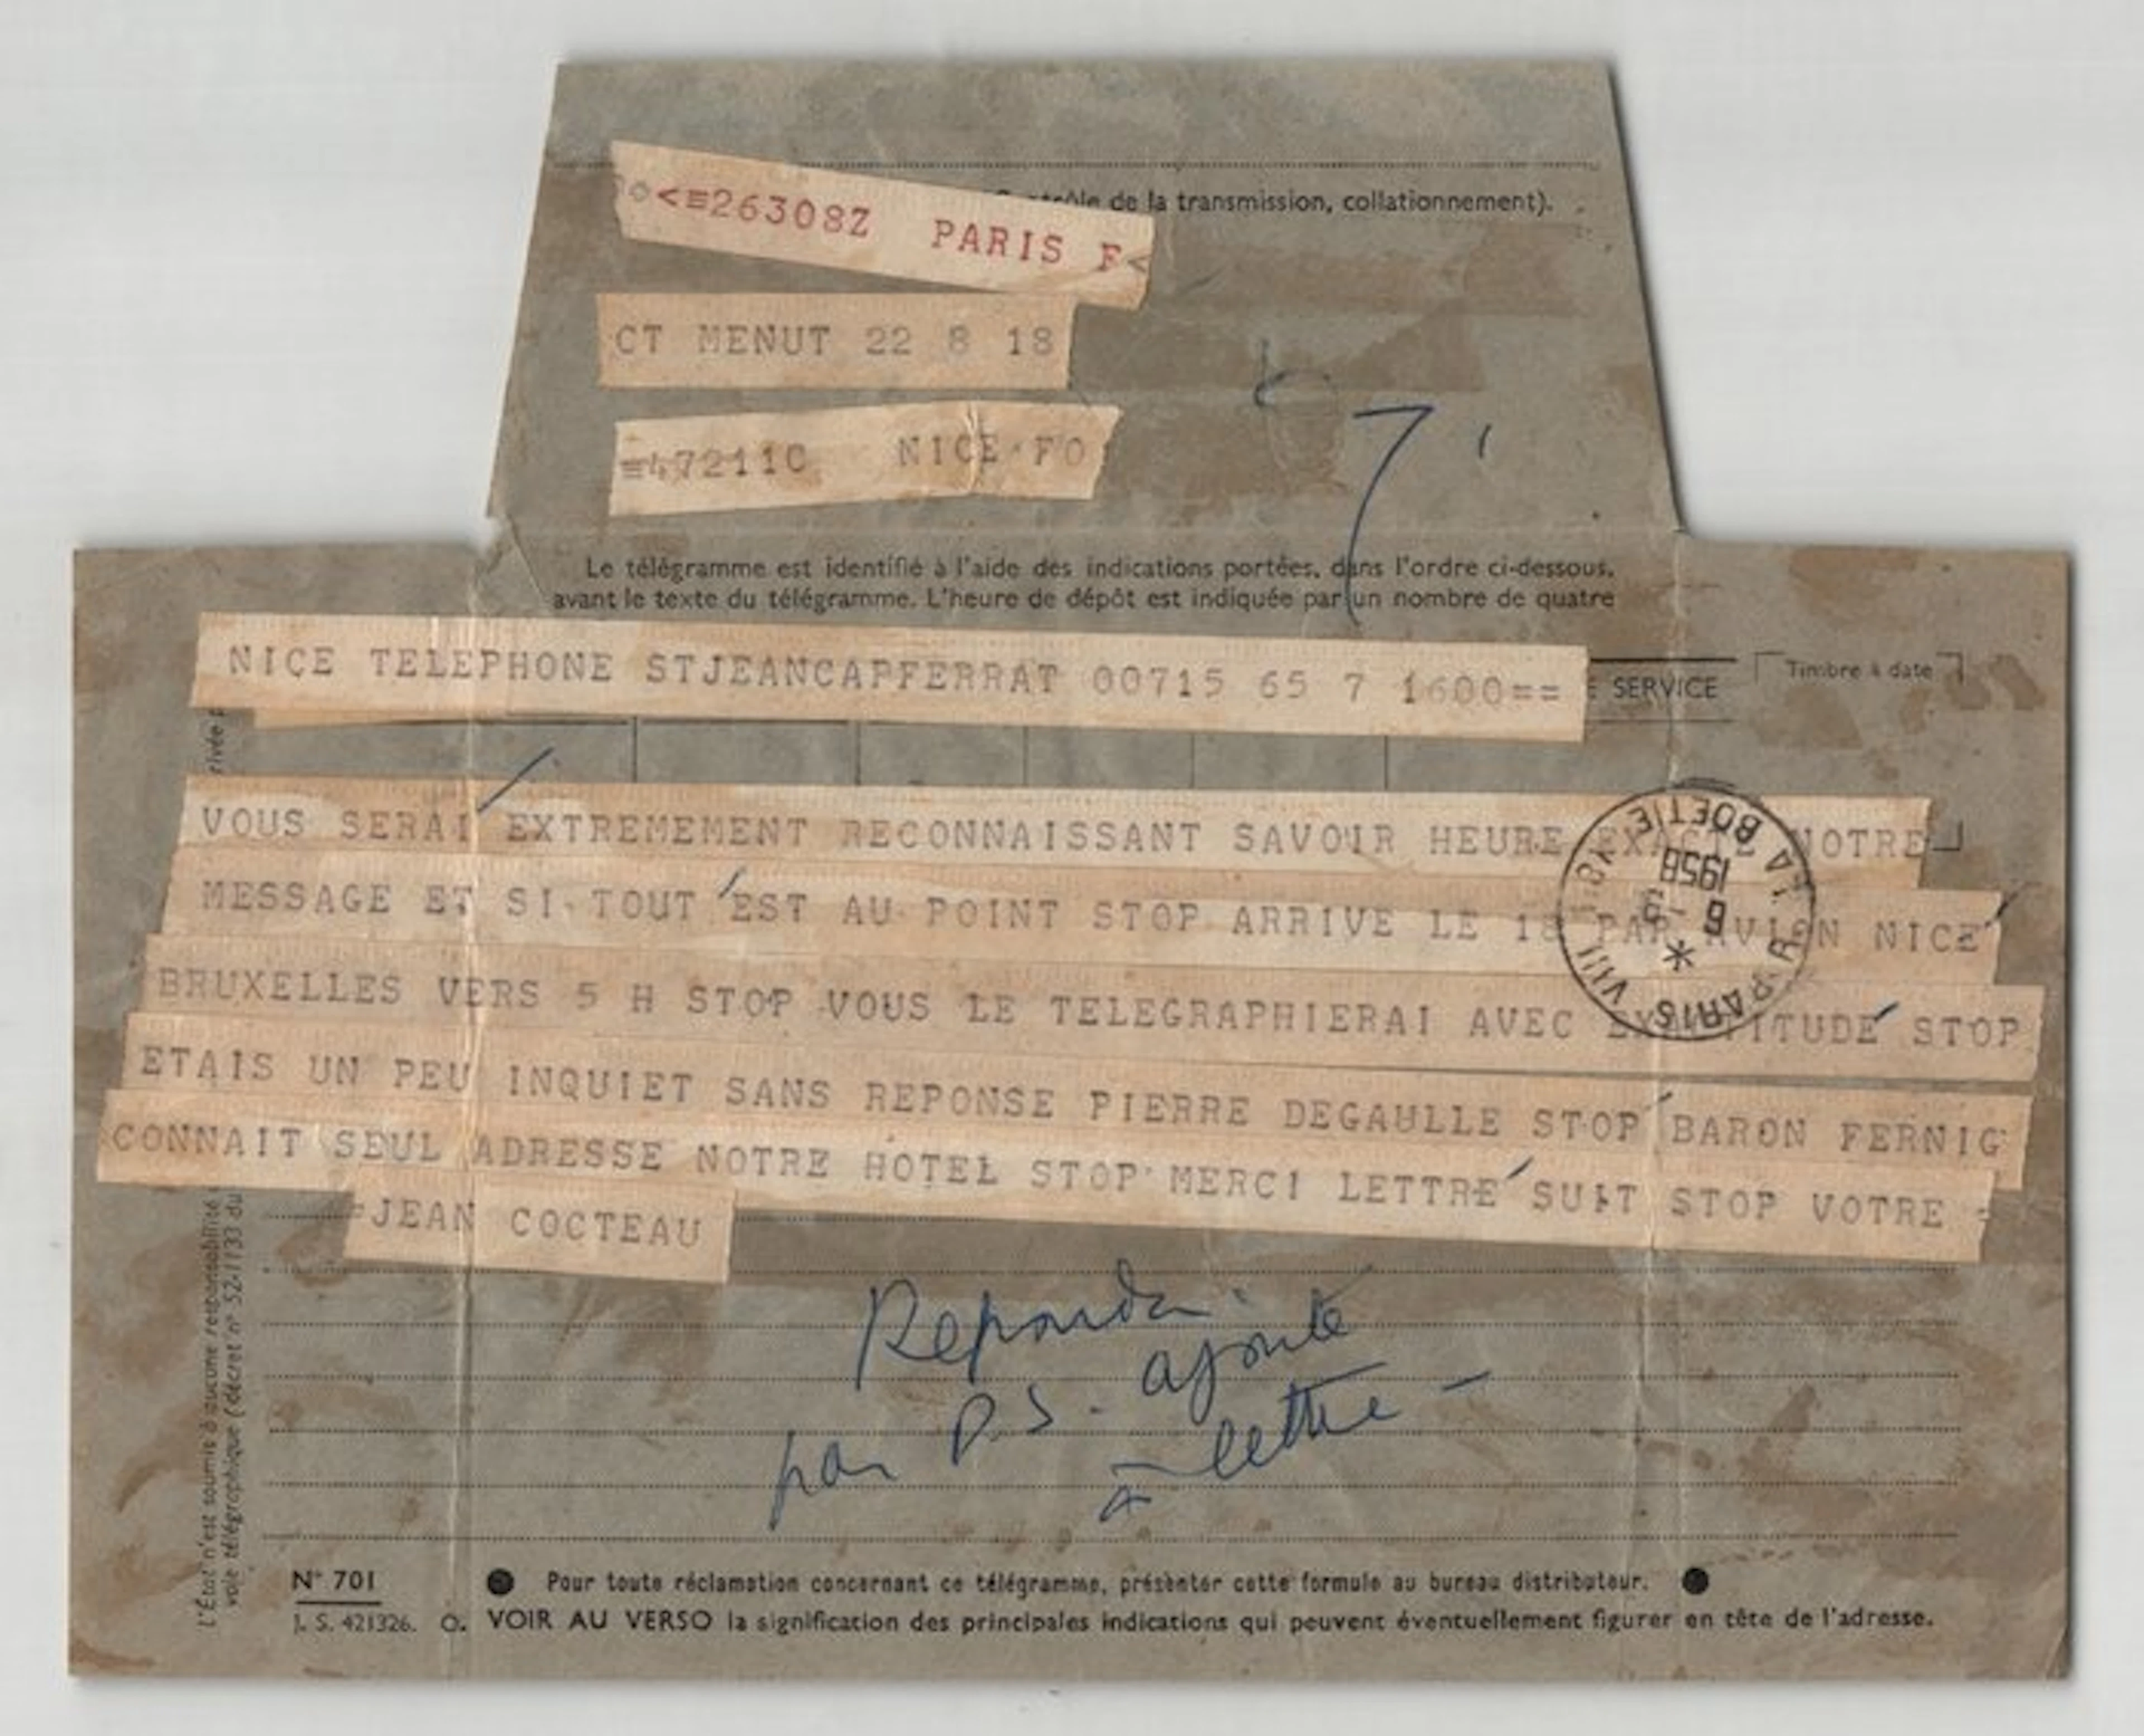 trôle de la transmission, collationnement).
<≡26308Z PARIS F<
CT MENUT 22 8 18
=472110 NICE FO
7
Le télégramme est identifié à l'aide des indications portées, dans l'ordre ci-dessous,
avant le texte du télégramme. L'heure de dépôt est indiquée par un nombre de quatre
NICE TELEPHONE STJEANCAPFERRAT 00715 65 7 1600==
SERVICE
Timbre à date
VOUS SERAI EXTREMEMENT RECONNAISSANT SAVOIR HEURE EXACTE NOTRE
MESSAGE ET SI TOUT EST AU POINT STOP ARRIVE LE 18 PAR AVION NICE
BRUXELLES VERS 5 H STOP VOUS LE TELEGRAPHIERAI AVEC EXACTITUDE STOP
ETAIS UN PEU INQUIET SANS REPONSE PIERRE DEGAULLE STOP BARON FERNIG
CONNAIT SEUL ADRESSE NOTRE HOTEL STOP MERCI LETTRE SUIT STOP VOTRE =
=JEAN COCTEAU
PARIS VIII
R. LA BOETIE
1958
par P.S. ajouté
à lettre -
L'État n'est soumis à aucune responsabilité
voie télégraphique (décret n° 52-1133 du
rivée
N° 701
J. S. 421326.
● Pour toute réclamation concernant ce télégramme, présenter cette formule au bureau distributeur. ●
VOIR AU VERSO la signification des principales indications qui peuvent éventuellement figurer en tête de l'adresse.